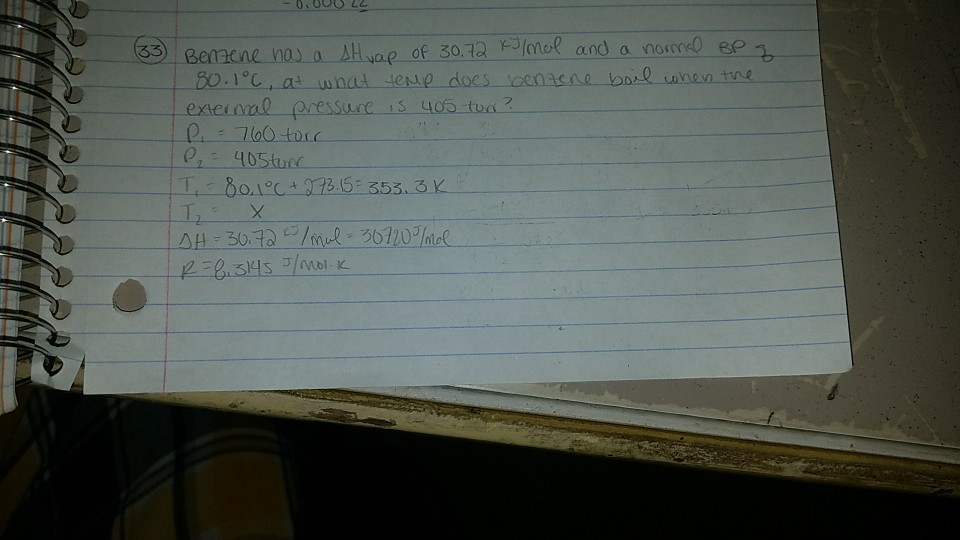 (33) Benzene has a ΔHvap of 30.72 KJ/mol and a normal BP of
80.1°C, at what temp does benzene boil when the
external pressure is 405 torr?
P₁ = 760 torr
P₂ = 405 torr
T₁ = 80.1°C + 273.15 = 353.3 K
T₂ = X
ΔH = 30.72 KJ/mol = 30720 J/mol
R = 8.3145 J/mol·K